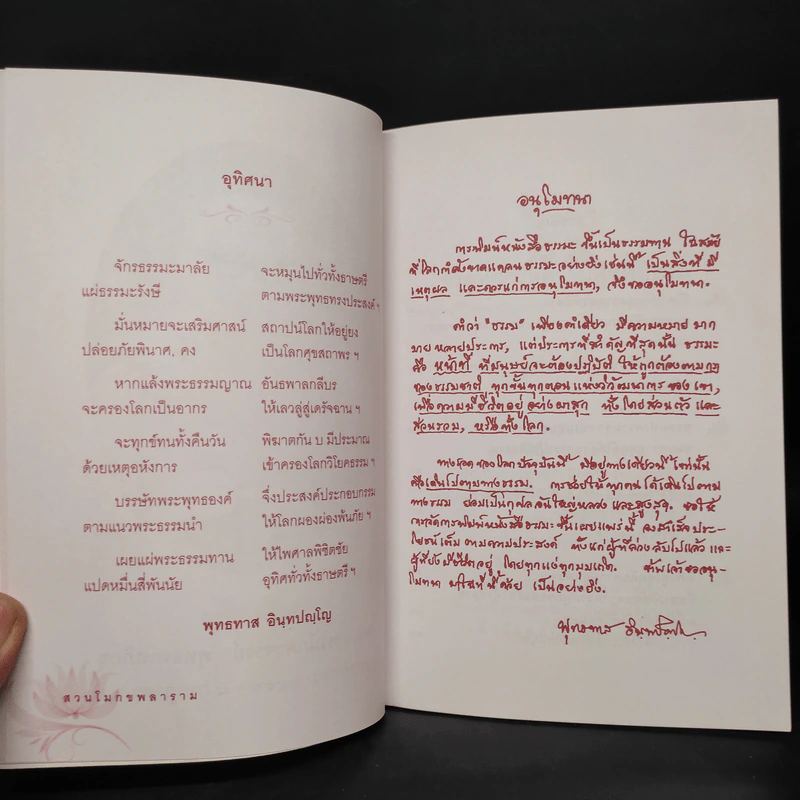 อุทิศนา
จักรธรรมะมาลัย จะหมุนไปทั่วทั้งธาษตรี
แผ่ธรรมะรังษี ตามพระพุทธทรงประสงค์ ฯ
มั่นหมายจะเสริมศาสน์ สถาปน์โลกให้อยู่ยง
ปล่อยภัยพินาศ, คง เป็นโลกศุขสถาพร ฯ
หากแล้งพระธรรมญาณ อันธพาลกลีบร
จะครองโลกเป็นอากร ให้เลวลู่สู่เดรัจฉาน ฯ
จะทุกข์ทนทั้งคืนวัน พิฆาตกัน บ มีประมาณ
ด้วยเหตุอหังการ เข้าครองโลกวิโยคธรรม ฯ
บรรษัทพระพุทธองค์ จึ่งประสงค์ประกอบกรรม
ตามแนวพระธรรมนำ ให้โลกผองผ่องพ้นภัย ฯ
เผยแผ่พระธรรมทาน ให้ไพศาลพิชิตชัย
แปดหมื่นสี่พันนัย อุทิศทั่วทั้งธาษตรี ฯ
พุทธทาส อินฺทปญฺโญ
สวนโมกขพลาราม
อนุโมทนา
การพิมพ์หนังสือธรรมะ ขึ้นเป็นธรรมทาน ในสมัย
ที่โลกกำลังขาดแคลนธรรมะอย่างยิ่งเช่นนี้ เป็นสิ่งที่มี
เหตุผล และควรแก่การอนุโมทนา, จึงขออนุโมทนา.
คำว่า "ธรรม" เพียงคำเดียว มีความหมาย มาก
มายหลายประการ, แต่ประการที่สำคัญที่สุดนั้น ธรรมะ
คือ หน้าที่ ที่มนุษย์จะต้องปฏิบัติ ให้ถูกต้องตามกฎ
ของธรรมชาติ ทุกขั้นทุกตอน แห่งวิวัฒนาการ ของเขา,
เพื่อความมีชีวิตอยู่ อย่างผาสุก ทั้งโดยส่วนตัว และ
ส่วนรวม, หรือทั้งโลก.
ทางรอดของโลกปัจจุบันนี้ มีอยู่ทางเดียวนี้เท่านั้น
คือเดินไปตามทางธรรม. การช่วยให้ทุกคนได้เดินไปตาม
ทางธรรม ย่อมเป็นกุศลอันใหญ่หลวง และสูงสุด. ขอให้
การจัดการพิมพ์หนังสือธรรมะ ขึ้นเผยแพร่นี้ จงสำเร็จประ-
โยชน์เต็ม ตามความประสงค์ ทั้งแก่ผู้ที่ล่วงลับไปแล้ว และ
ผู้ที่ยังมีชีวิตอยู่ โดยทุกแง่ทุกมุมเถิด. ข้าพเจ้าขออนุ-
โมทนา มาในที่นี้ด้วย เป็นอย่างยิ่ง.
พุทธทาส อินฺทปญฺโญ